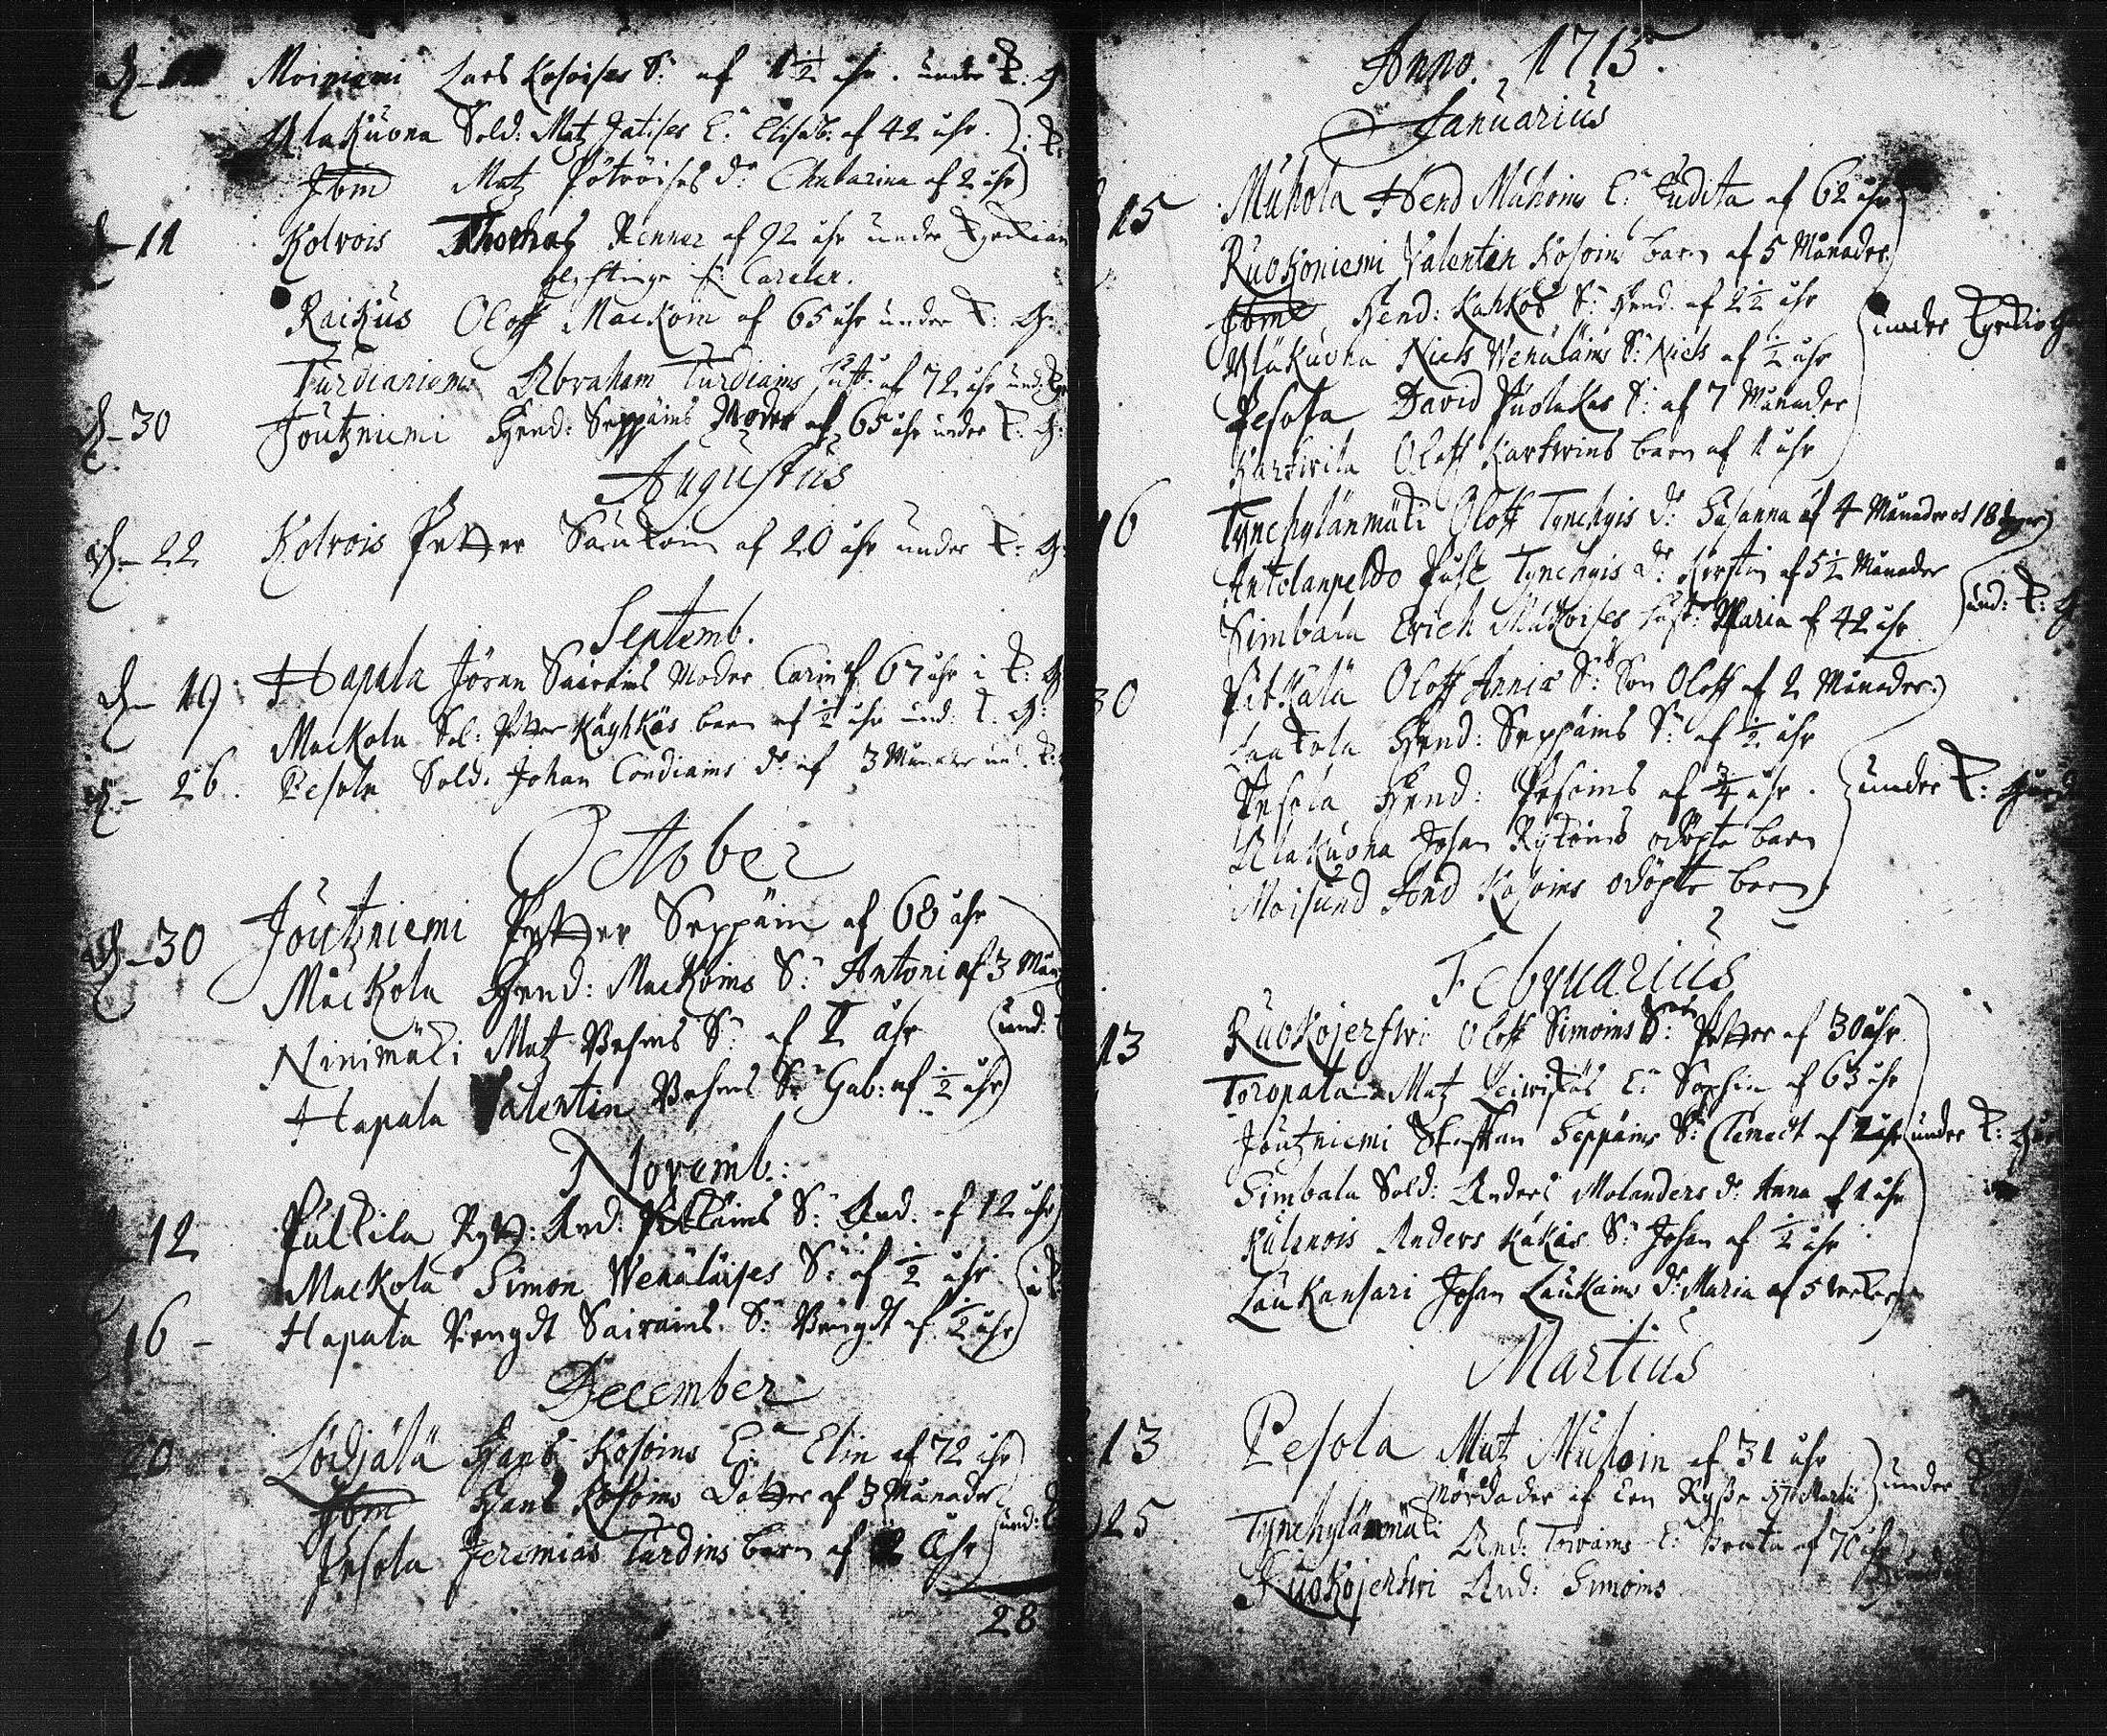 Moiniemi Lars Kosoises S: af 1½ åhr. under K: G
Alakuona Sold: Matz Jatises E: Elisab. af 42 åhr.
Ibm Matz Pötröises d: Chatarina af 2 åhr
11 Kolrois Thomas Renner af 92 åhr under Kyrkian
Careler.
Raikus Oloff Mackoin af 65 åhr under K: G:
Turdianiemi Abraham Turdiains hust: af 72 åhr und: K
d 30 Joutzniemi Hend: Seppäins Moder af 65 åhr under K: G:
Augustus
d 22 Kolrois Petter Säukoin af 20 åhr under K: G:
Septemb.
d 19 Hapala Jöran Sairains Moder Carin af 67 åhr i K: G
Mackola Sol: Petter Käyhkäs barn af ½ åhr und: K. G:
d 26. Pesola Sold. Johan Condiains d: af 3 Månader und. K:
October
d 30 Joutzniemi Petter Seppäin af 68 åhr
Mackola Hend: Mackoins S: Antoni af 3 Mån
Ninimäki Matz Vesens S: af 1 åhr und:
Hapala Valentin Vesens S: Gab: af ½ åhr
Novemb:
12 Pulkila Rytt: And: S: And. af 12 åhr
Mackola Simon Wenäläises S: af ½ åhr
16 - Hapala Bengdt Sairains S: Bengdt af ½ åhr
December
20 Lödjälä Hans Kosoins E: Elin af 72 åhr
Ibm Hans Kosoins Dotter af 3 Månader und:
Pesola Jeremias Turdins barn af 2 åhr
28
Anno 1715.
Januarius
15 Muhola Hend Muhoins E: Judita af 62 åhr
Ruokoniemi Valentin Kosoins barn af 5 Månader
Ibm Hend: Kahkos S: Hend. af 2½ åhr
Alakuona Niels Wenäläins S: Niels af ½ åhr under Kyrkio
Pesola David Puolakas S: af 7 Månader
Oloff barn af 1 åhr
16 Tynchylänmäki Oloff Tynchyis d: Susanna af 4 Månader 18 dygn
Antolanpeldo Tynchyis d: Kirstin af 5½ Månader
Simbala Erich hust: Maria af 42 åhr und: K: G
30 Pitkälä Oloff Annix S: Son Oloff af 2 Månader
Laakola Hend: Seppäins S: af ½ åhr
Pesola Hend: Pesoins af ¾ åhr. under K:
Alakuona Johan Rytöins odöpte barn
Moisund And Kosoins odöpte barn.
Februarius
13 Ruokojerfwi Oloff Simoins S: Petter af 30 åhr
Toropala Matz E: Sophia af 63 åhr
Joutzniemi Steffan Seppäins S: Clemect af 1 åhr under K:
Simbala Sold: Anders Molanders d: Anna af 1 åhr
Kulenois Anders Kakas S: Johan af ½ åhr
Laukansari Johan Laukains d: Maria af 5 weker
Martius
13 Pesola Matz Muhoin af 31 åhr
Mördades af Een Rysse d 7 Martii under K:
25 Tynchylänmäki And: Toivains E: Beata af 70 åhr
Ruokojerfwi And: Simoins